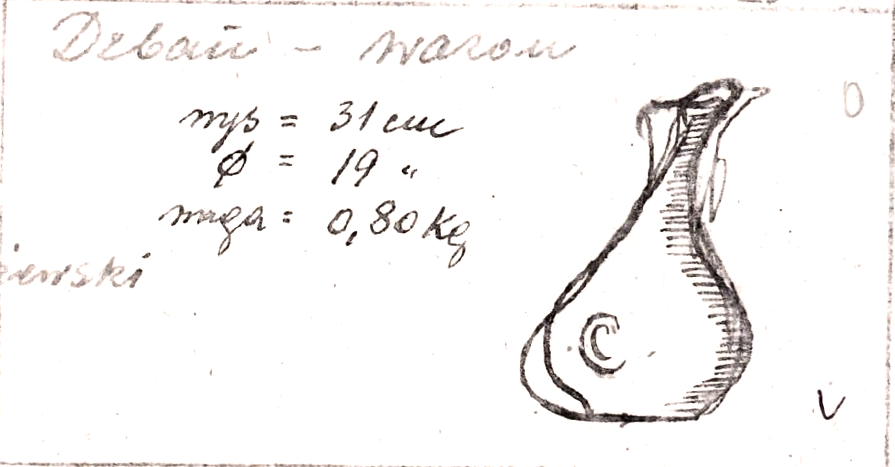 Dzban – wazon
wys = 31 cm
ø = 19 "
waga = 0,80 Kg
żewski
C
V